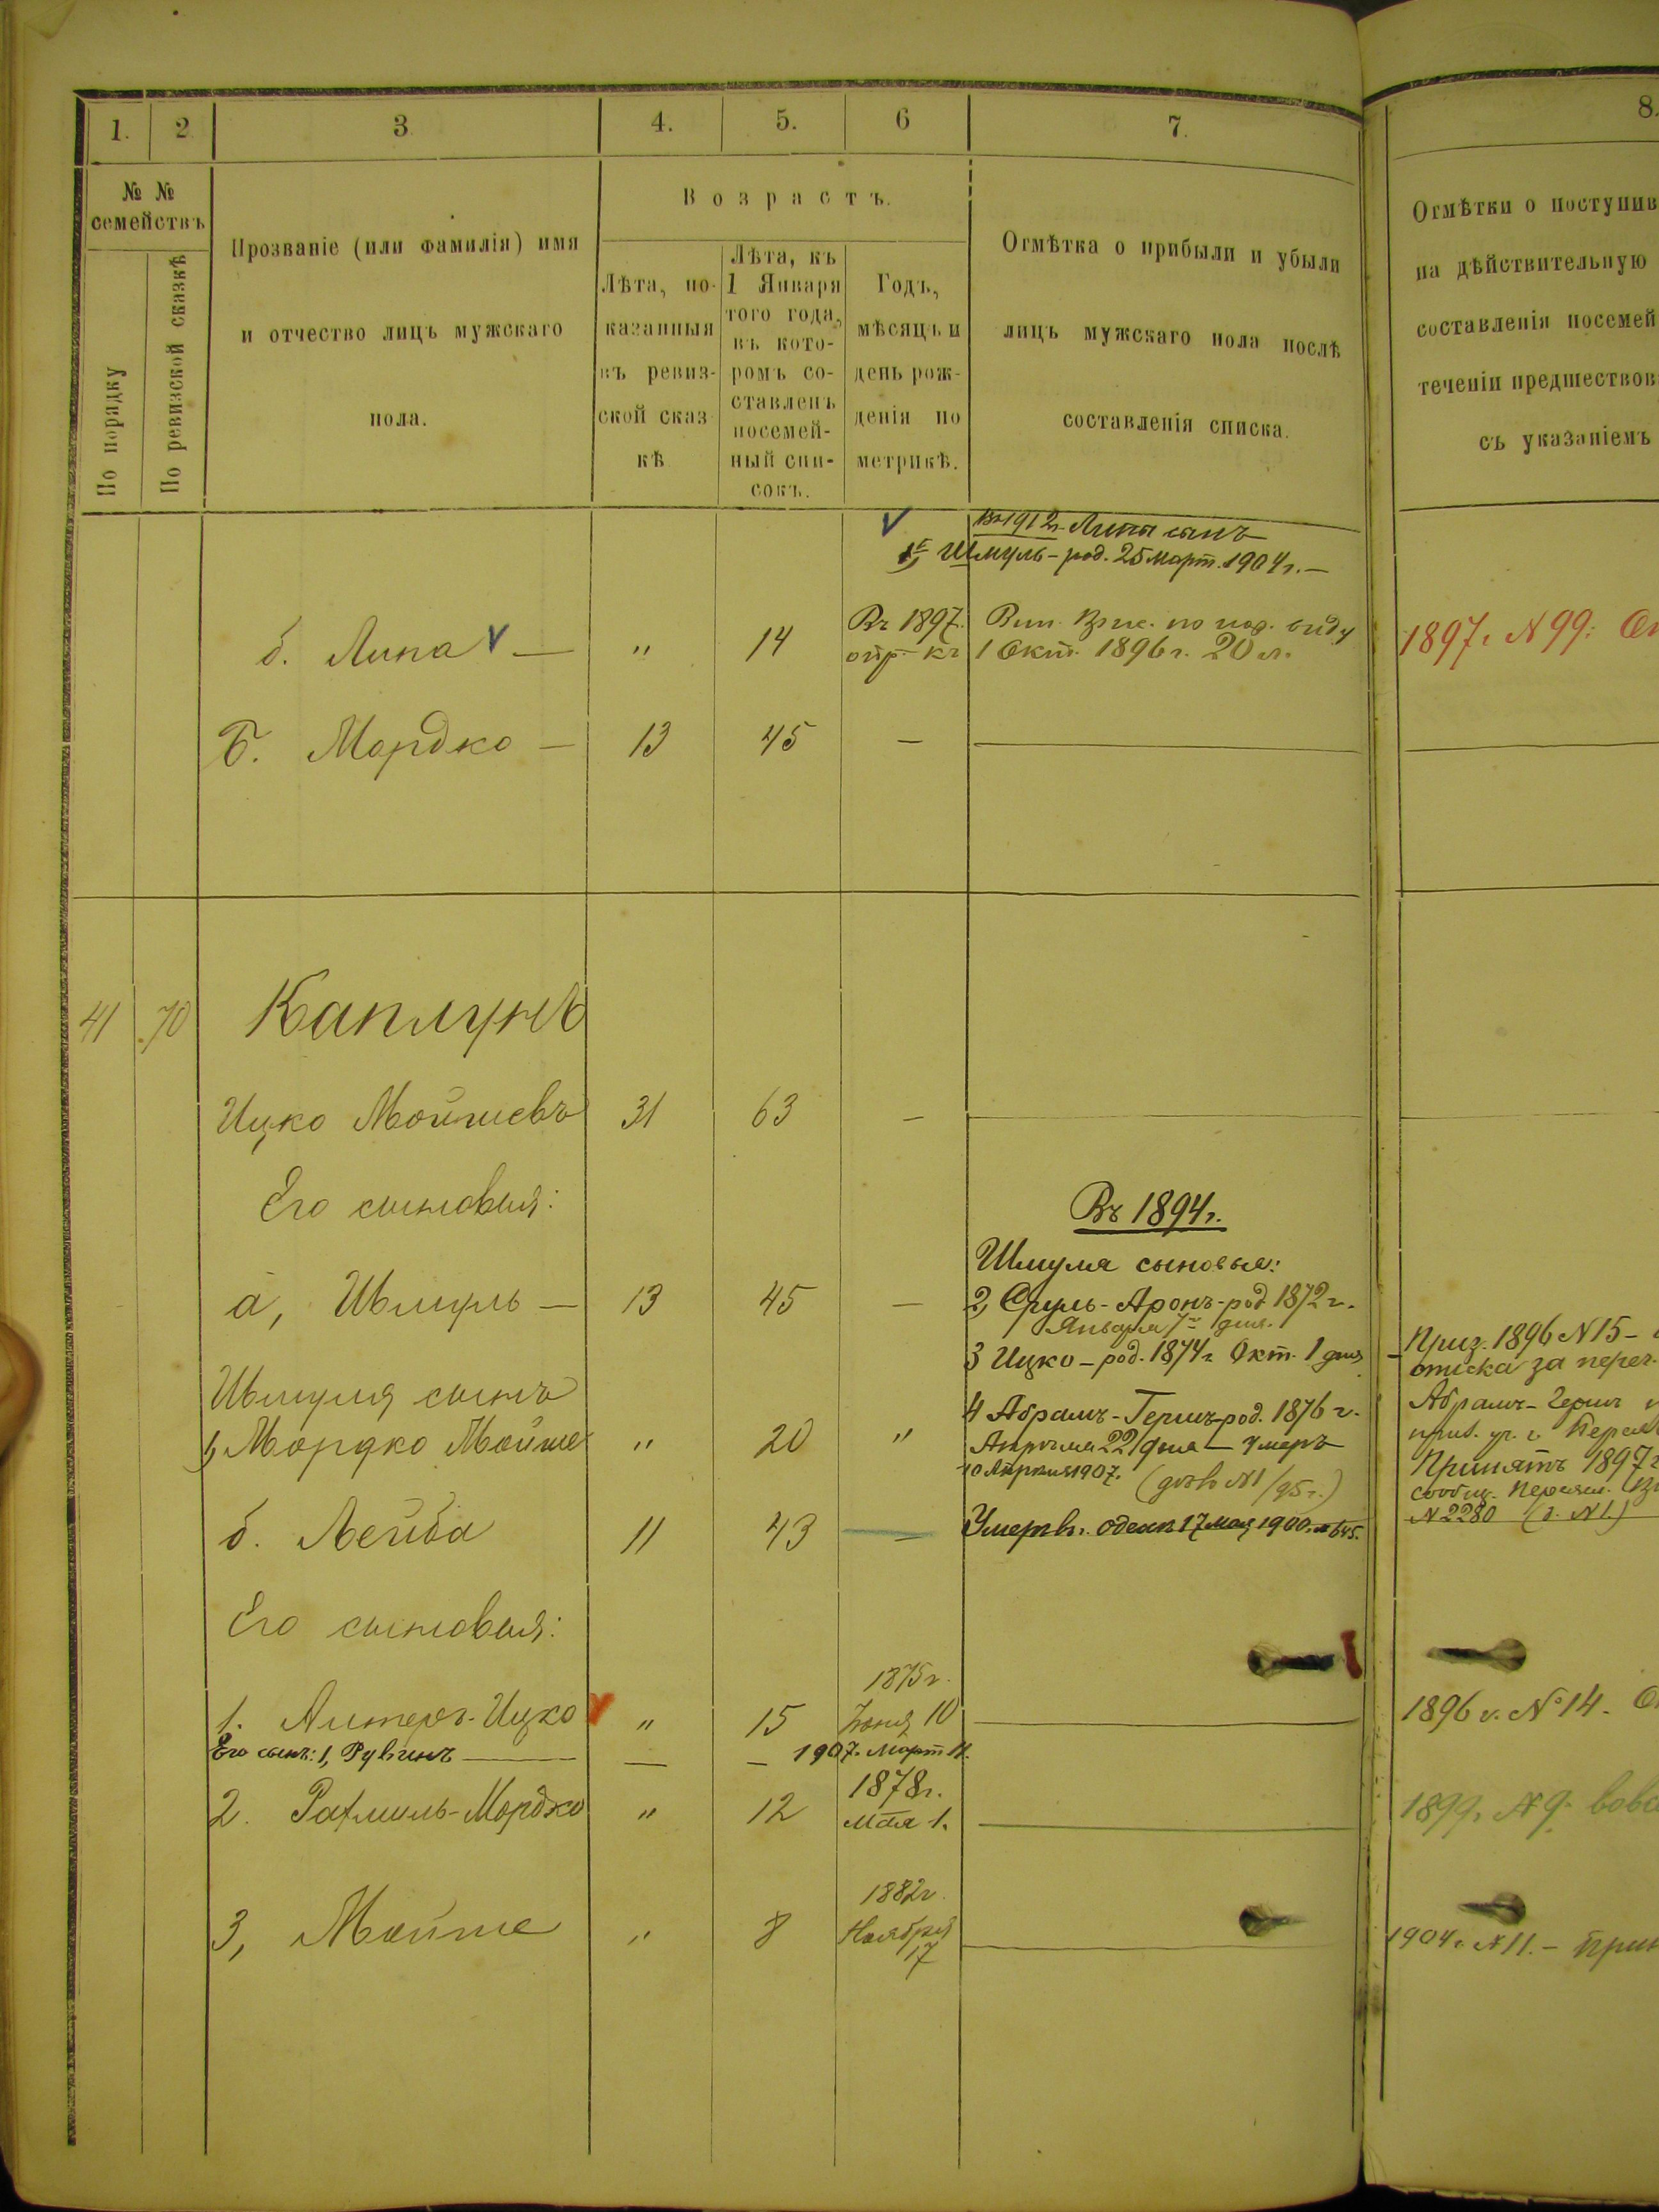 1. 2 3 4. 5. 6 7. 8.
№ №
семействъ
По порядку
По ревизской сказкѣ
Прозваніе (или фамилія) имя
и отчество лицъ мужскаго
пола.
Возрастъ.
Лѣта, по-
казанныя
въ ревиз-
ской сказ
кѣ
Лѣта, къ
1 Января
того года,
въ кото-
ромъ со-
ставленъ
посемей-
ный спи-
сокъ.
Годъ,
мѣсяцъ и
день рож-
денія по
метрикѣ.
Отмѣтка о прибыли и убыли
лицъ мужскаго пола послѣ
составленія списка.
Отмѣтки о поступив
на дѣйствительную
составленія посемей
теченіи предшествов
съ указаніемъ
Въ 1912 г. Липы сынъ
1й Шмуль - род. 25 Март. 1904 г. -
б. Липа — " 14
Въ 1897
опр. къ 1 Окт. 1896 г. 20 л.
по нар. виду
1897 г. N 99.
Б. Мордко — 13 45 —
41 70 Каплунъ
Ицко Мойшевъ 31 63 —
Его сыновья:
Въ 1894 г.
Шмуля сыновья:
а, Шмуль — 13 45 —
2, Сруль-Аронъ - род 1872 г.
Января 7го дня.
3 Ицко - род. 1874 г. Окт. 1 дня
Приз. 1896 N 15 -
отиска за переч.
Шмуля сынъ
1, Мордко Мойше " 20 "
4 Абрамъ-Гершъ род. 1876 г.
Апрѣля 22 дня — Умеръ
10 Апрѣля 1907. (дѣло N 1/95 г.)
Абрамъ-Герш
Принятъ 1897 г
сообщ.
N 2280 (д. N 1.)
б. Лейба 11 43 —
Умеръ въ г. Одессѣ 17 мая 1900 г. N 645.
Его сыновья:
1. Алтеръ-Ицко " 15
1875 г.
Іюня 10
1896 г. № 14.
Его сынъ: 1, Рувинъ — — — 1907. Март 11.
2. Рахмиль-Мордко " 12
1878 г.
Мая 1.
1899 г. N 9.
3, Мойше " 8
1882 г.
Ноября
17
1904 г. N 11. -